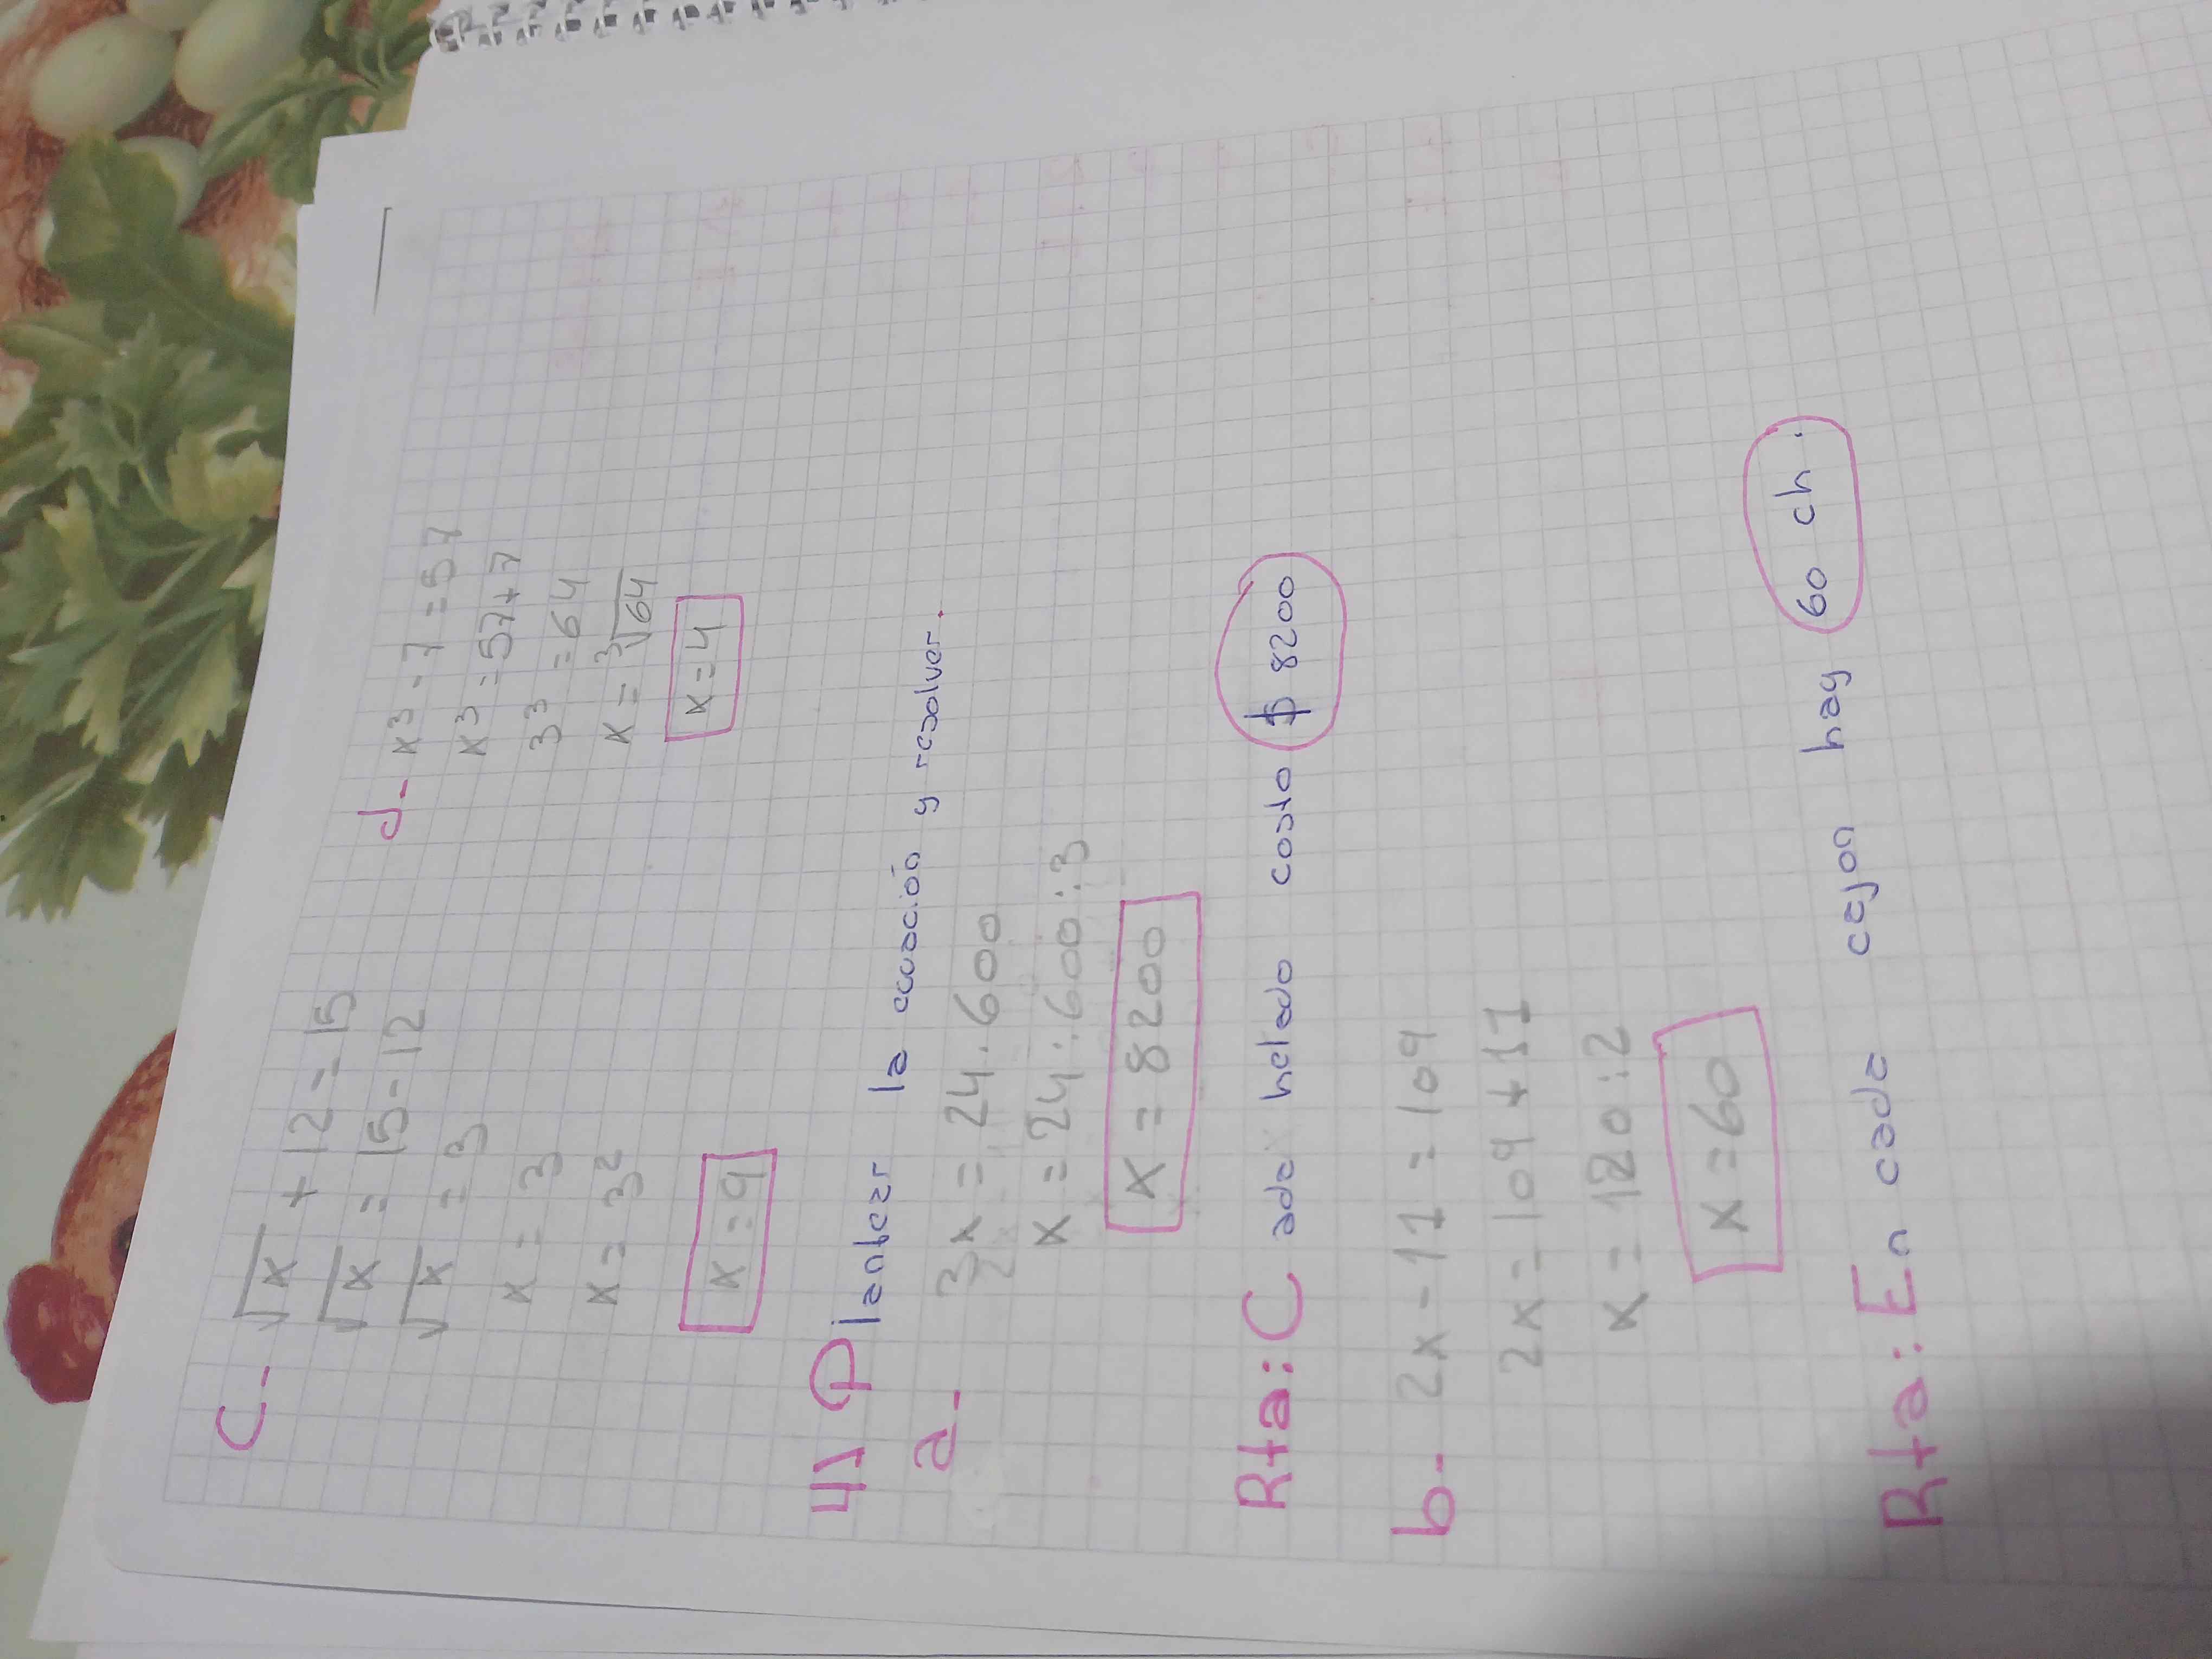 C- √x + 12 = 15
√x = 15 - 12
√x = 3
x = 3
x = 3²
x = 9
d- x³ - 7 = 57
x³ = 57 + 7
3³ = 64
x = ³√64
x = 4
4) Plantear la ecuación y resolver.
a- 3x = 24.600
x = 24.600 : 3
x = 8200
Rta: Cada helado costo $ 8200
b- 2x - 11 = 109
2x = 109 + 11
x = 120 : 2
x = 60
Rta: En cada cajon hay 60 ch.